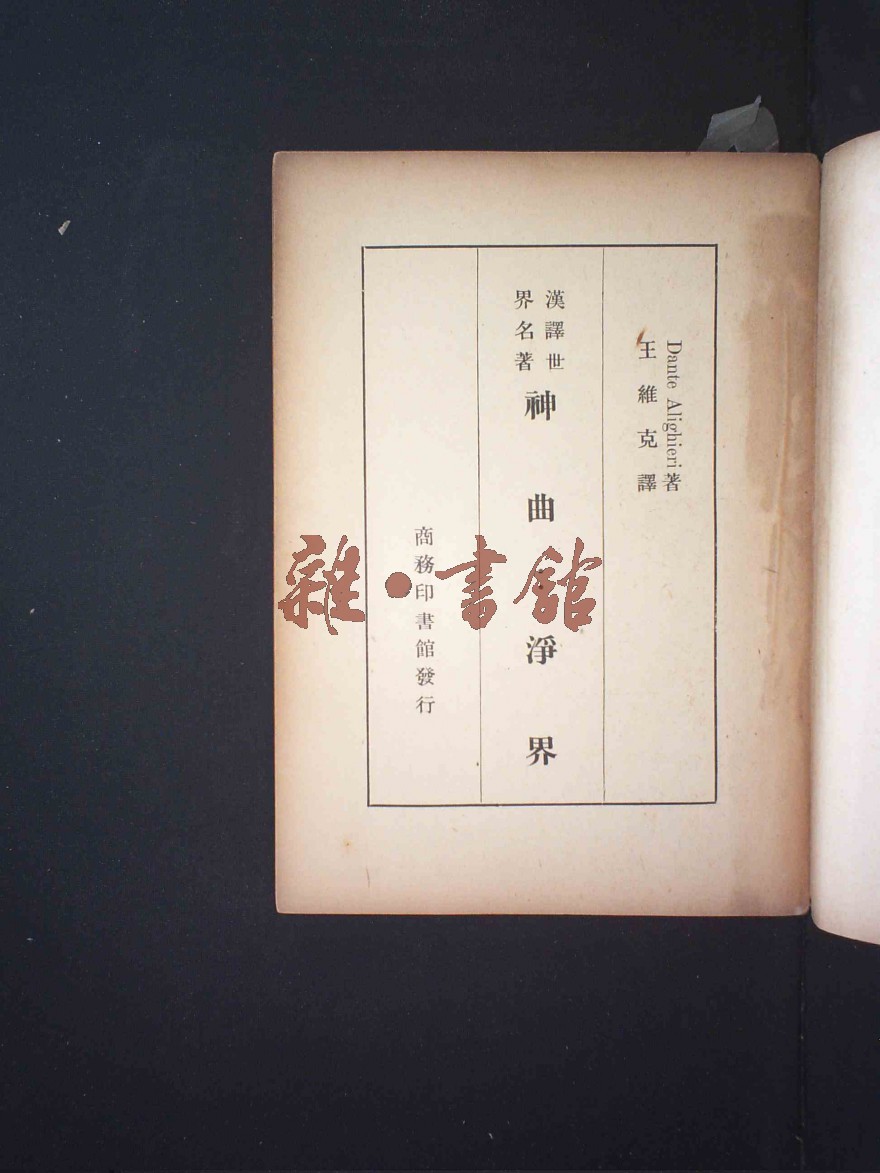 Dante Alighieri著
王維克譯
漢譯世
界名著
神曲：淨界
商務印書館發行
雜·書館